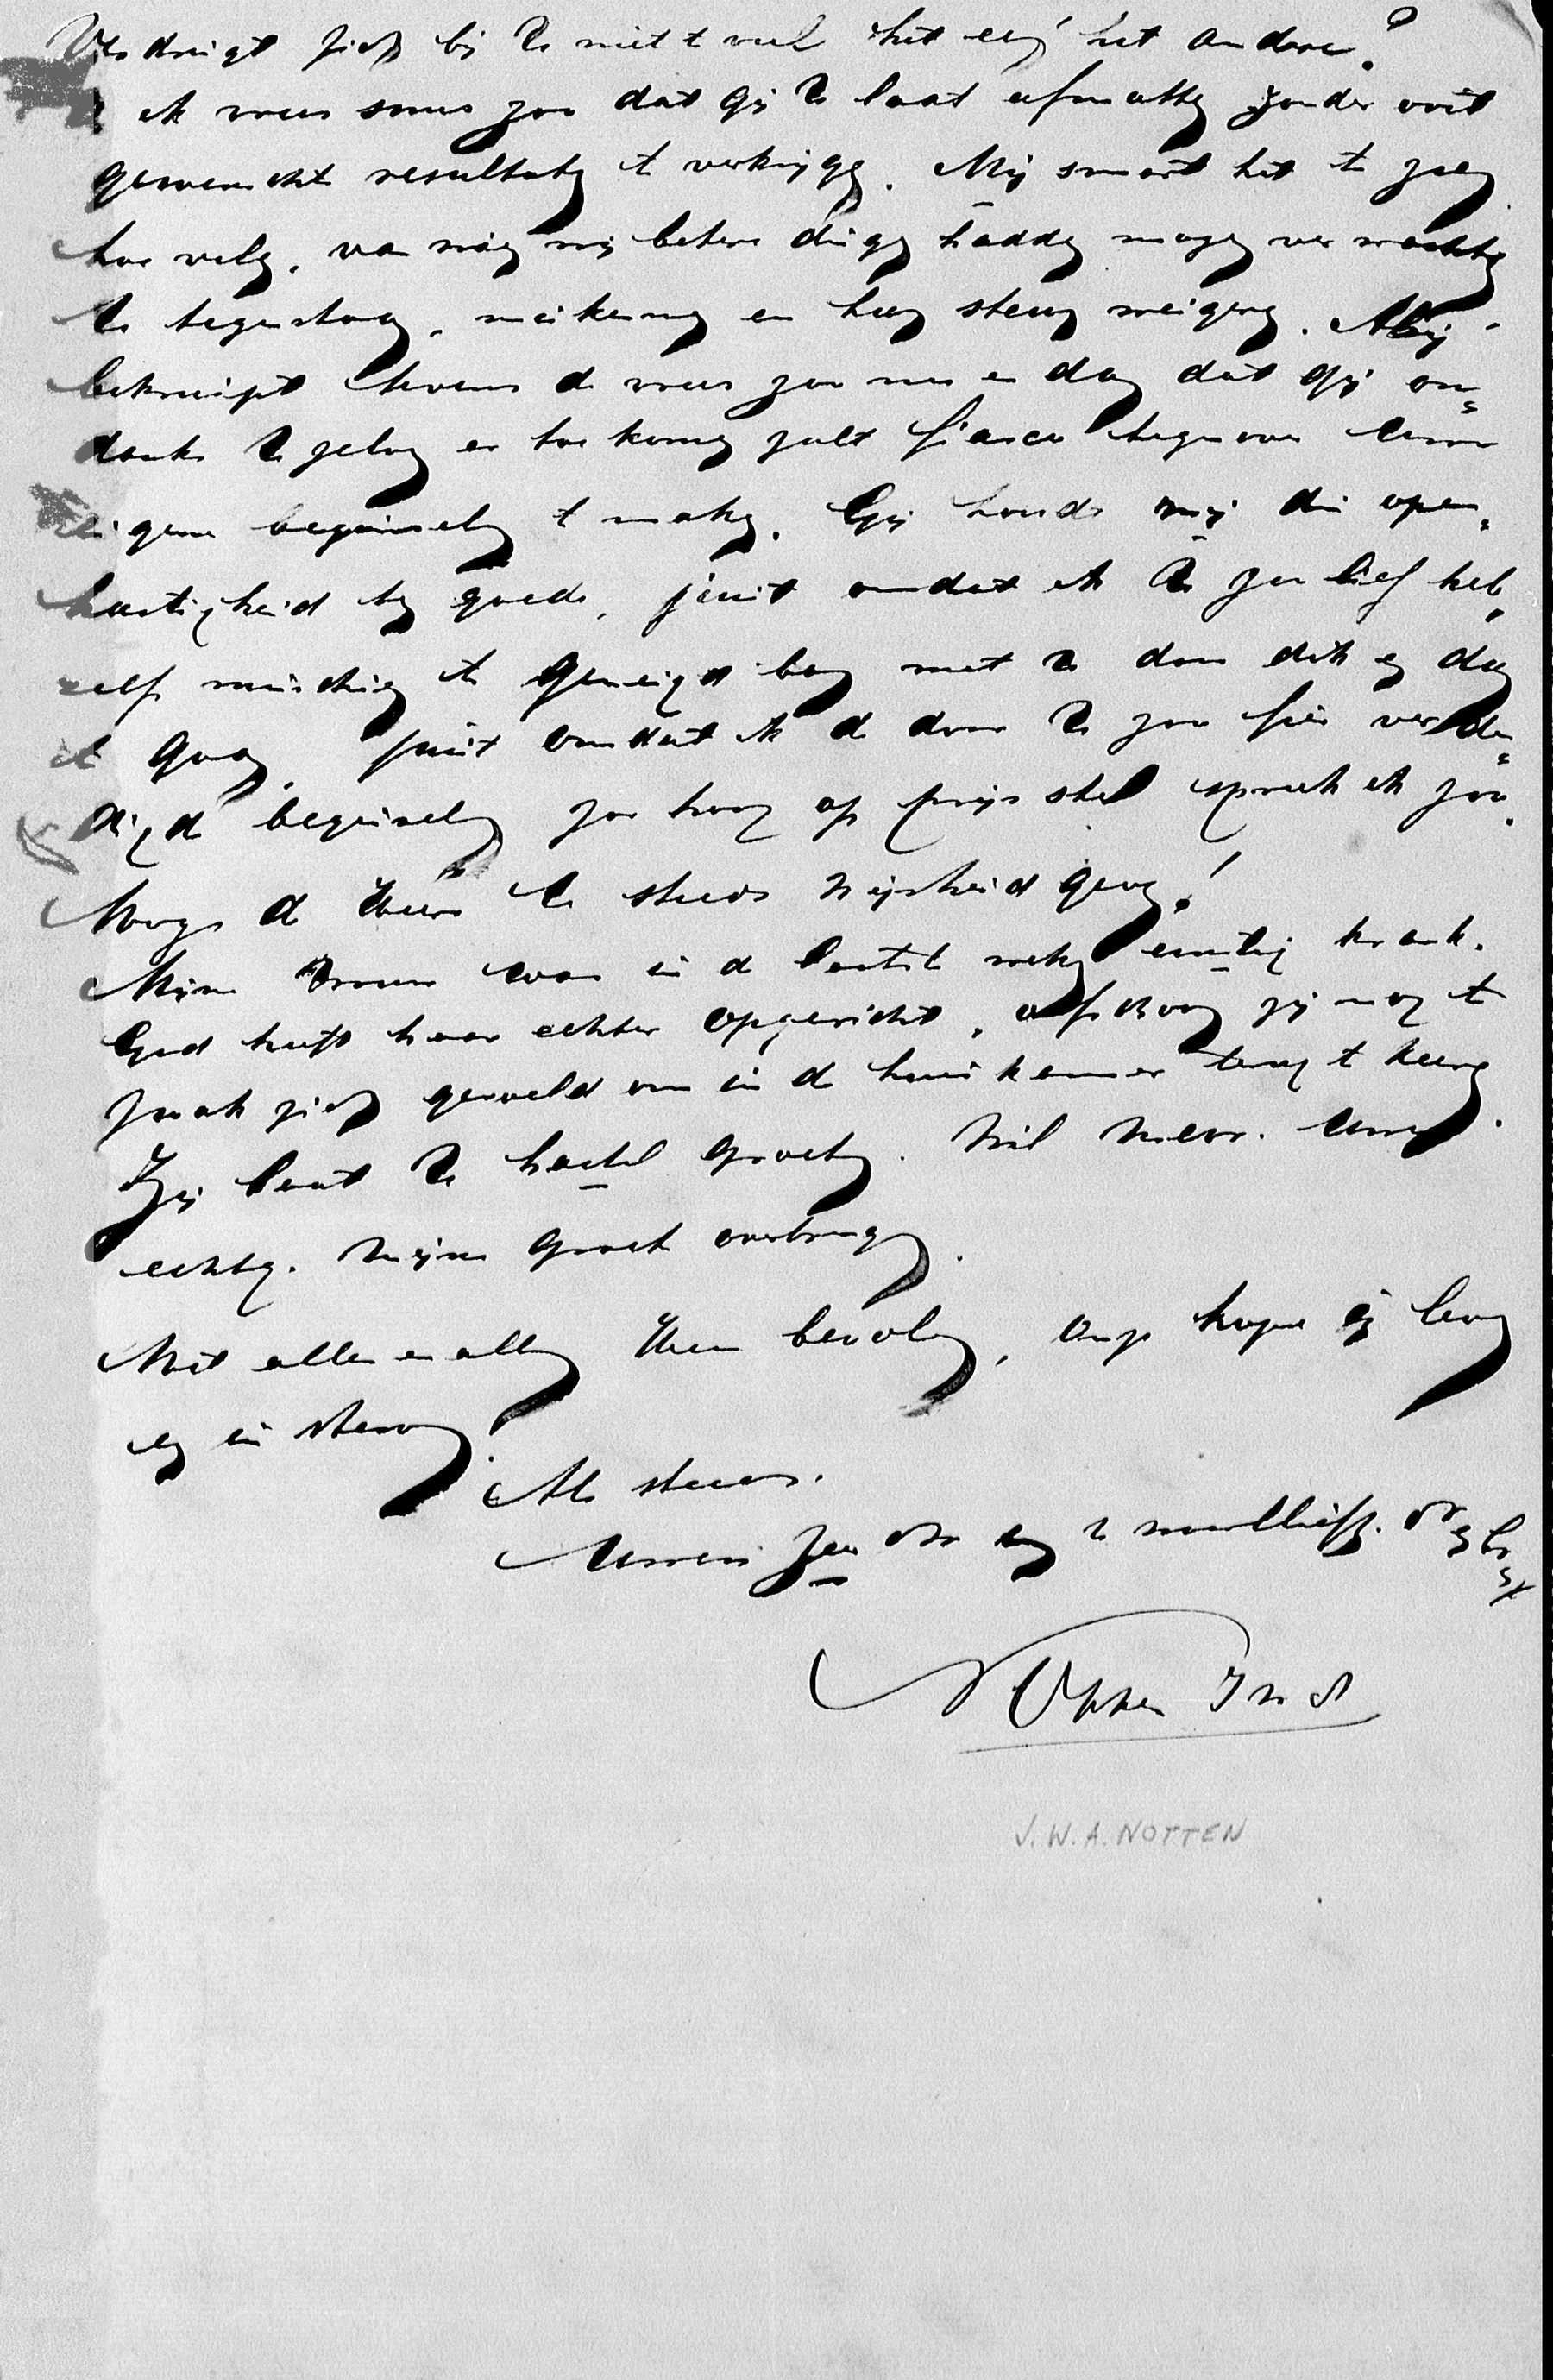 Verdringt zich bij U niet t veel het een het andere?
ik vrees soms zoo dat gij U laat afmatten zonder ooit
gewenscht resultaten te verkrijgen. Mij smart het te zien
hoe velen, van wien wij betere dingen hadden mogen verwachten
U tegenstaan, miskennen en hun steun weigeren. Mij
bekruipt tevens de vrees zoo nu en dan dat gij on=
danks U zelven er toe komen zult fiasco tegenover Uwe
eigene beginselen te maken. Gij houdt mij die open=
hartigheid ten goede, juist omdat ik U zoo lief heb,
zelf misschien te geneigd ben met U door dik en dun
te gaan, juist omdat ik de door U zoo fier verde=
digde beginselen zoo hoog op prijs stel spreek ik zoo.
Moge de Heere U steeds wijsheid geven!
Mijne Vrouw was in de laatste weken ernstig krank.
God heeft haar echter opgericht, ofschoon zij nog te
zwak zich gevoeld om in de huiskamer terug te keeren
Zij laat U hartel groeten. Wil Mevr. Uwe
echtg. mijne groete overbrengen.
Met alles en allen Hem bevolen, onze hope in leven
en in sterven.
Als steeds.
Uwen zeer dw en U
Notten
J.W.A. NOTTEN